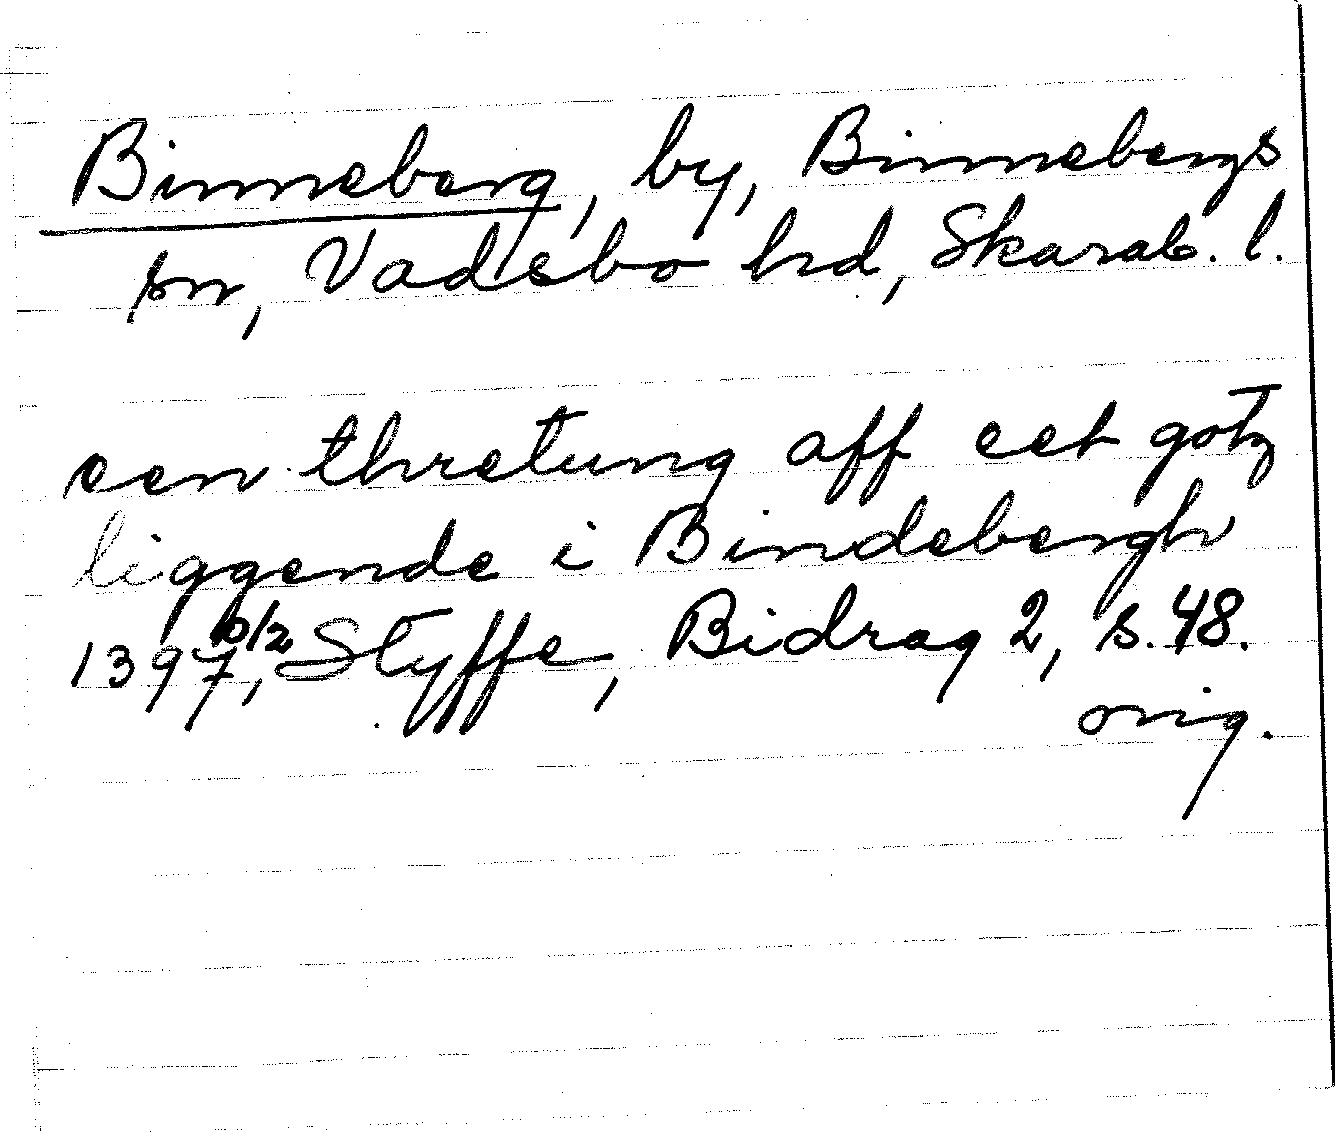 Binneberg, by, Binnebergs
sn, Vadsbo hd, Skarab. l.
een thretung aff eet gotz
liggende i Bindebergh
1397 10/2, Styffe, Bidrag 2, s. 48.
orig.